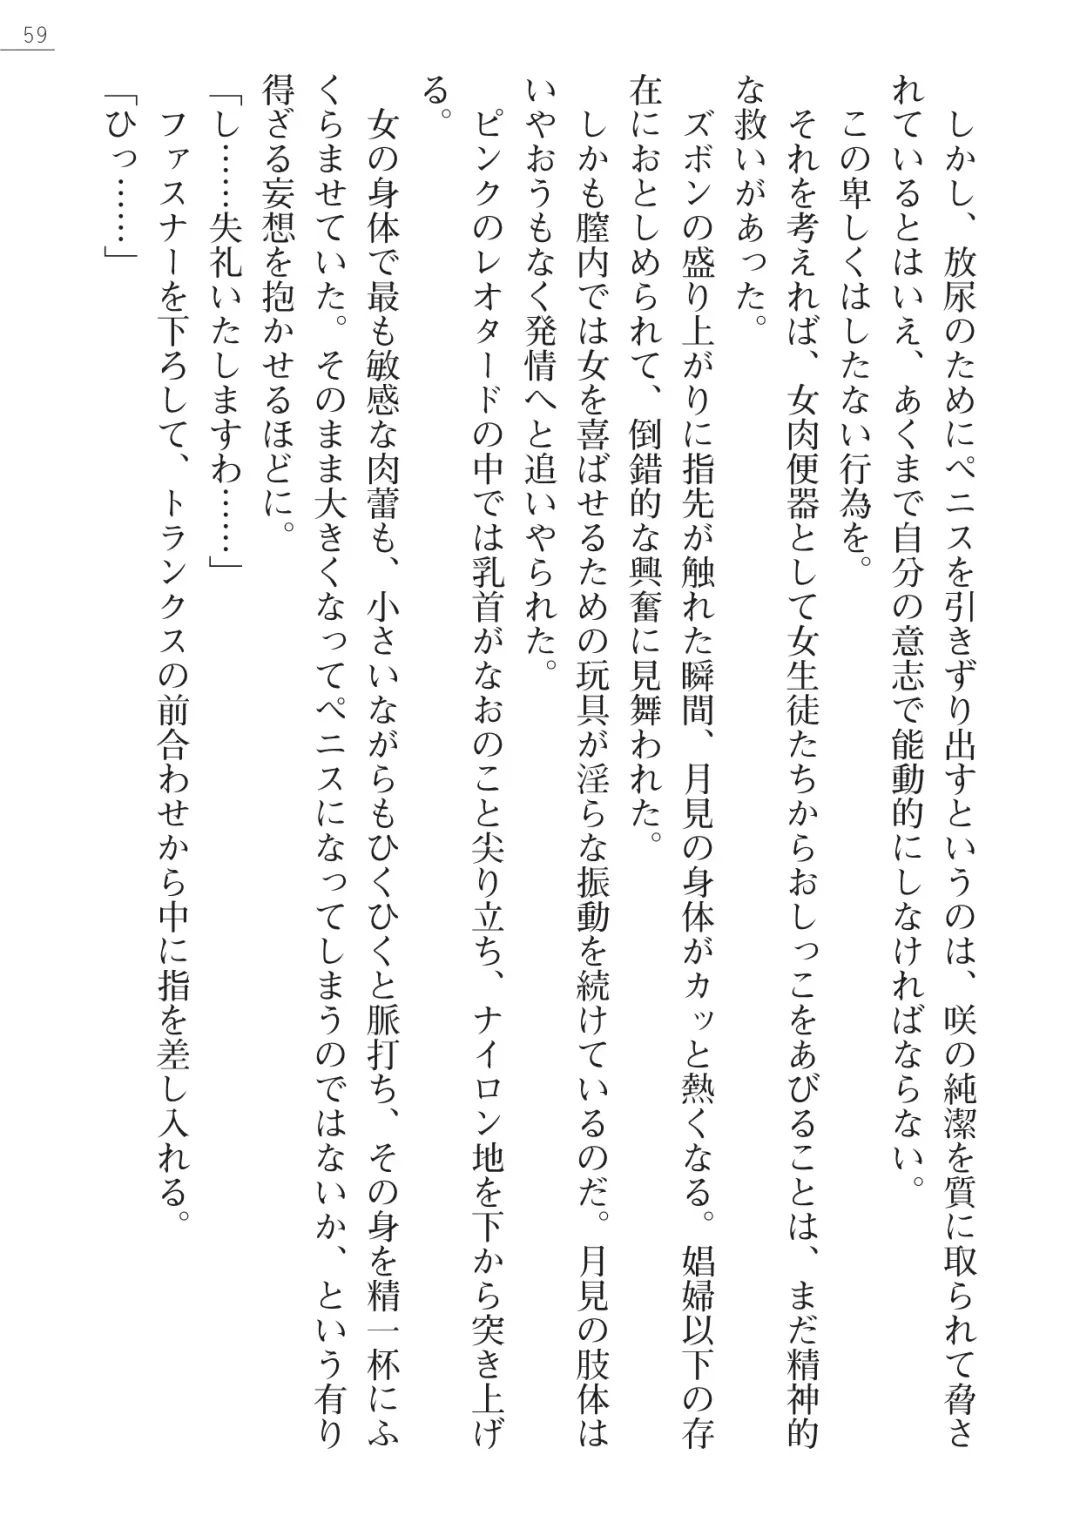 59
しかし、放尿のためにペニスを引きずり出すというのは、咲の純潔を質に取られて脅さ
れているとはいえ、あくまで自分の意志で能動的にしなければならない。
この卑しくはしたない行為を。
それを考えれば、女肉便器として女生徒たちからおしっこをあびることは、まだ精神的
な救いがあった。
ズボンの盛り上がりに指先が触れた瞬間、月見の身体がカッと熱くなる。娼婦以下の存
在におとしめられて、倒錯的な興奮に見舞われた。
しかも膣内では女を喜ばせるための玩具が淫らな振動を続けているのだ。月見の肢体は
いやおうもなく発情へと追いやられた。
ピンクのレオタードの中では乳首がなおのこと尖り立ち、ナイロン地を下から突き上げ
る。
女の身体で最も敏感な肉蕾も、小さいながらもひくひくと脈打ち、その身を精一杯にふ
くらませていた。そのまま大きくなってペニスになってしまうのではないか、という有り
得ざる妄想を抱かせるほどに。
「し……失礼いたしますわ……」
ファスナーを下ろして、トランクスの前合わせから中に指を差し入れる。
「ひっ……」